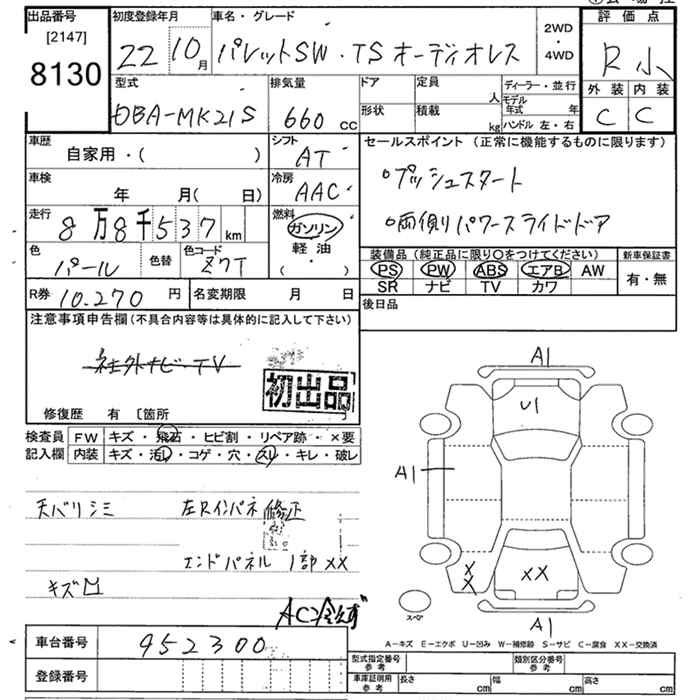 出品番号
[2147]
8130
初度登録年月
22 10月
車名・グレード
パレットSW・TSオーディオレス
2WD
・
4WD
評価点
R小
外装 内装
C C
型式
DBA-MK21S
排気量
660 cc
ドア
定員
人
形状
積載
kg
ディーラー・並行
モデル年式 年
ハンドル 左・右
車歴
自家用・( )
シフト
AT
車検
年 月( 日)
冷房
AAC
走行
8万8千537km
燃料
ガソリン
軽油
( ・ )
色
パール
色替
色コード
Z7T
R券 10.270 円
名変期限 月 日
セールスポイント (正常に機能するものに限ります)
・プッシュスタート
・両側リパワースライドドア
装備品 (純正品に限り○をつけてください)
PS PW ABS エアB AW
SR ナビ TV カワ
新車保証書
有・無
後日品
注意事項申告欄(不具合内容等は具体的に記入して下さい)
社外ナビ・TV
初出品
修復歴 有 〔箇所
検査員記入欄
FW キズ・飛石・ヒビ割・リペア跡・×要
内装 キズ・汚レ・コゲ・穴・スレ・キレ・破レ
天バリシミ
左Rインパネ修正
エンドパネル1部XX
キズ凹
A1
U1
A1
XX
XX
A1
スペア
A-キズ E-エクボ U-凹み W-補修跡 S-サビ C-腐食 XX-交換済
車台番号 952300
登録番号
型式指定番号 参考
類別区分番号 参考
車庫証明用 参考
長さ cm
幅 cm
高さ cm